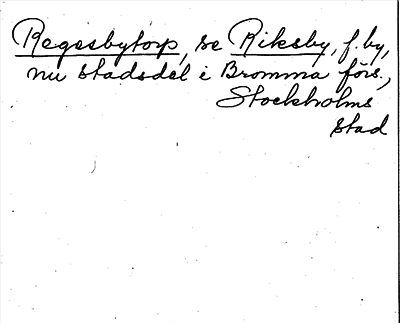 Regesbytorp, se Riksby, f. by,
nu stadsdel i Bromma förs.,
Stockholms
stad